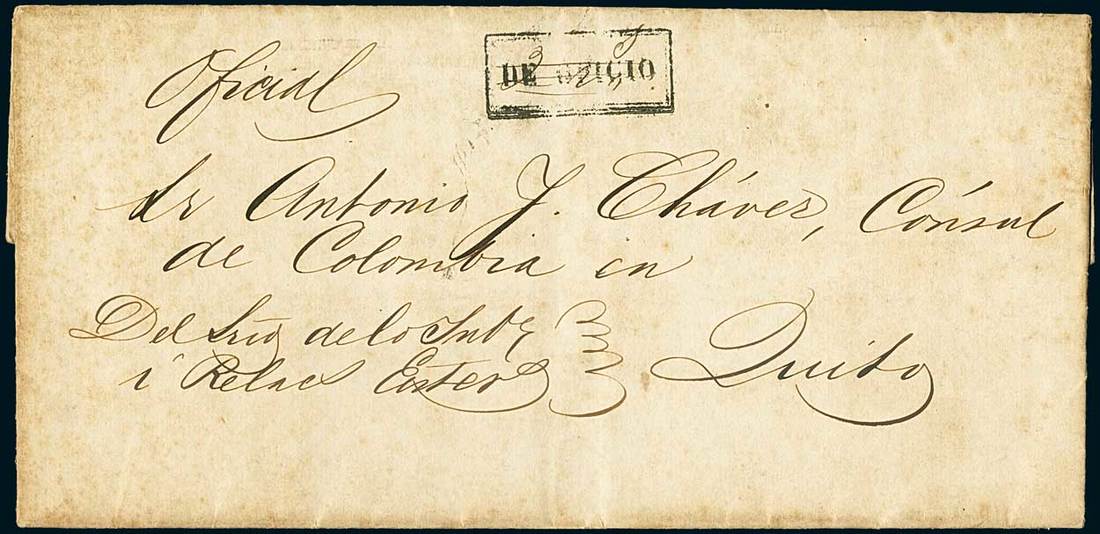 DE OFICIO
Oficial
Sr Antonio J. Chávez, Cónsul
de Colombia en
Del Srio de lo Int.
i Relac Exter
Quito